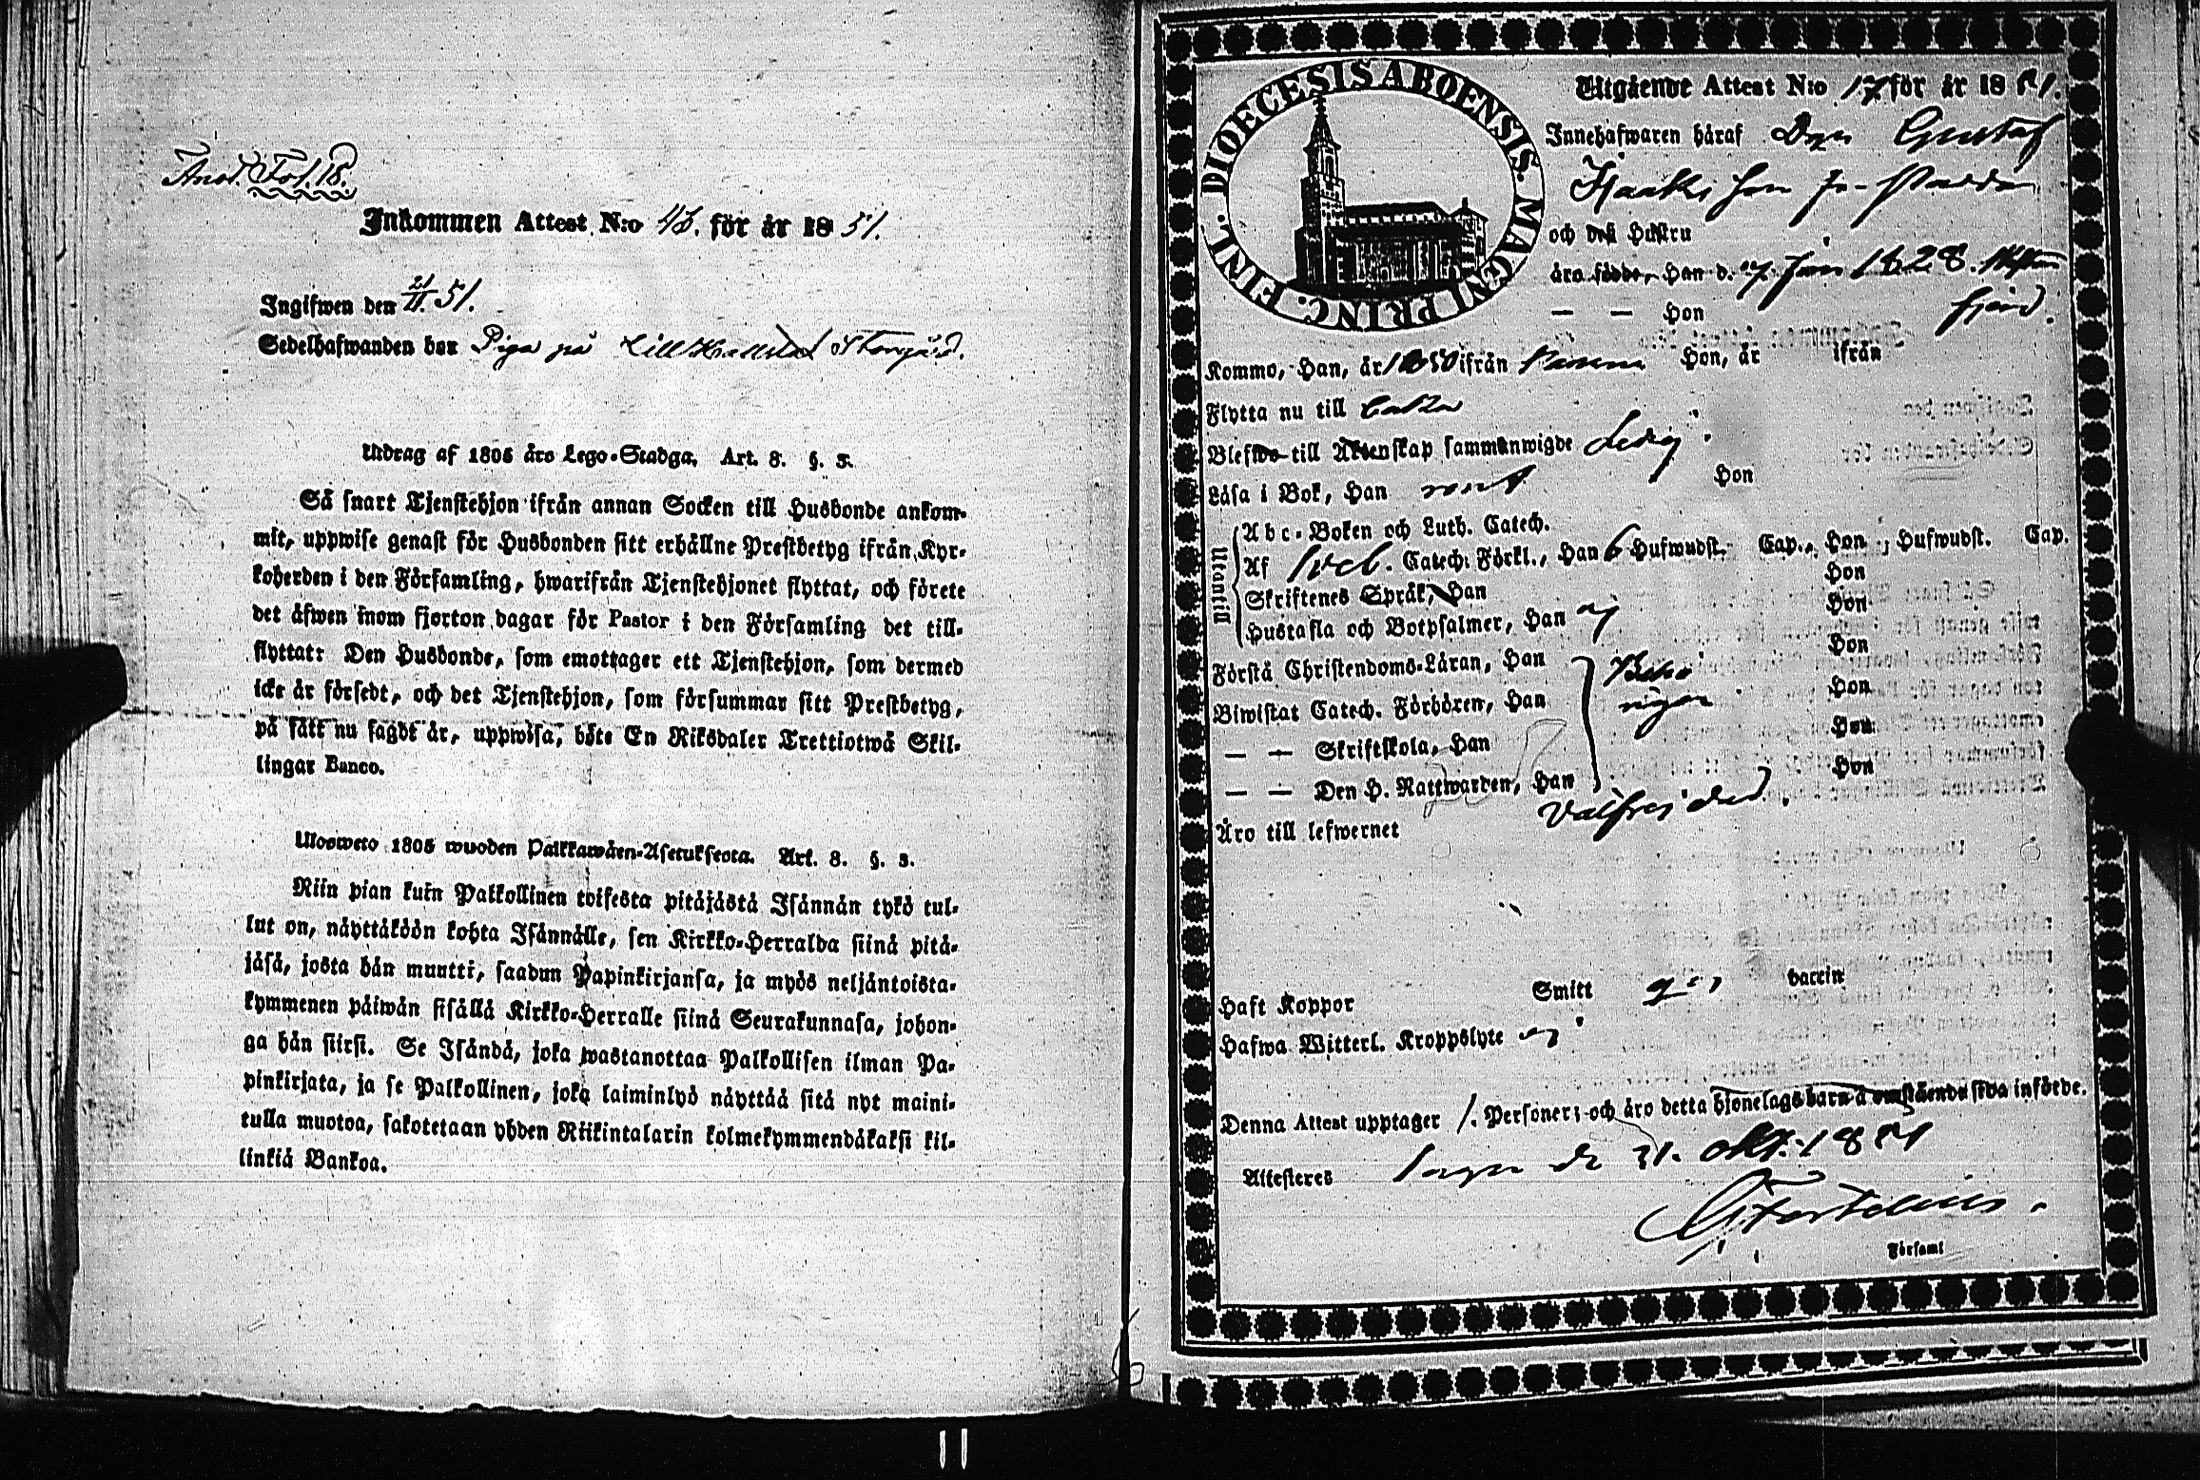 Anot. Fol. 18.
Inkommen Attest N:o 43. för år 1851.
Ingifwen den 21/11 51.
Sedelhafwanden bor Piga på Storgård.
Utdrag af 1805 års Lego-Stadga, Art. 8. §. 3.
Så snart Tjenstehjon ifrån annan Socken till Husbonde ankom-
mit, uppwise genast för Husbonden sitt erhållne Prestbetyg ifrån Kyr-
koherden i den Församling, hwarifrån Tjenstehjonet flyttat, och förete
det äfwen inom fjorton dagar för Pastor i den Församling det till-
flyttat: Den Husbonde, som emottager ett Tjenstehjon, som dermed
icke är försedt, och det Tjenstehjon, som försummar sitt Prestbetyg,
på sätt nu sagdt är, uppwisa, böte En Riksdaler Trettiotwå Skil-
lingar Banco.
Ulosweto 1805 wuoden Palkkawäen-Asetuksesta. Art. 8. §. 3.
Niin pian kuin Palkollinen toisesta pitäjästä Isännän tykö tul-
lut on, näyttäköön kohta Isännälle, sen Kirkko-Herralda siinä pitä-
jäsä, josta hän muutti, saadun Papinkirjansa, ja myös neljäntoista-
kymmenen päiwän sisällä Kirkko-Herralle siinä Seurakunnasa, johon-
ga hän siirsi. Se Isändä, joka wastanottaa Palkollisen ilman Pa-
pinkirjata, ja se Palkollinen, joka laiminlyö näyttää sitä nyt maini-
tulla muotoa, sakotetaan yhden Riikintalarin kolmekymmendäkaksi kil-
linkiä Bankoa.
FINL. DIOECESIS ABOENSIS. MAGNI PRINC.
Utgående Attest N:o 17 för år 1851.
Innehafwaren häraf Dgn Gustaf
Isaaksson fr.
och dess Hustru
äro födde, Han d. 7 Jan 1828.
fjerd.
— — Hon
Kommo, Han, år 1850 ifrån Hon, år ifrån
Flytta nu till
Blefwo till Äktenskap sammanwigde Ledig.
Läsa i Bok, Han Hon
Utantill
Abc-Boken och Luth. Catech.
Af Sveb. Catech: Förkl., Han 6 Hufwudst. Cap., Hon , Hufwudst. Cap.
Skriftenes Språk, Han Hon
Hustafla och Botpsalmer, Han ej Hon
Förstå Christendoms-Läran, Han Hon
Biwistat Catech. Förhören, Han Hon
— — Skriftskola, Han Hon
— — Den H. Nattwarden, Han Hon
Äro till lefwernet välfrejdad.
Haft Koppor Smitt gen vaccin
Hafwa Witterl. Kroppslyte ej
Denna Attest upptager 1. Personer; och äro detta hjonelags barn å omstående sida införde.
Attesteres den 31. Okt. 1851
Församl